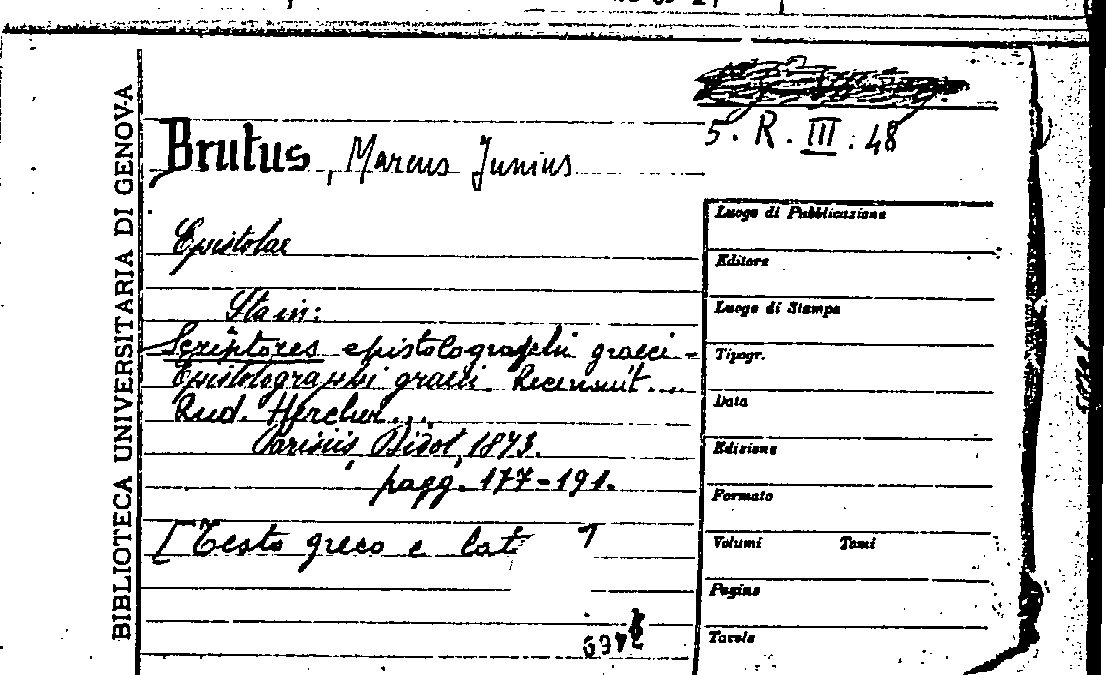 BIBLIOTECA UNIVERSITARIA DI GENOVA
5. R. III. 48
Brutus, Marcus Junius
Epistolae
Sta in:
Scriptores epistolographi graeci =
Epistolographi graeci. Recensuit...
Rud. Hercher...
Parisiis, Didot, 1873.
pagg. 177-191.
[Testo greco e lat
Luogo di Pubblicazione
Editore
Luogo di Stampa
Tipogr.
Data
Edizione
Formato
Volumi Tomi
Pagine
Tavole